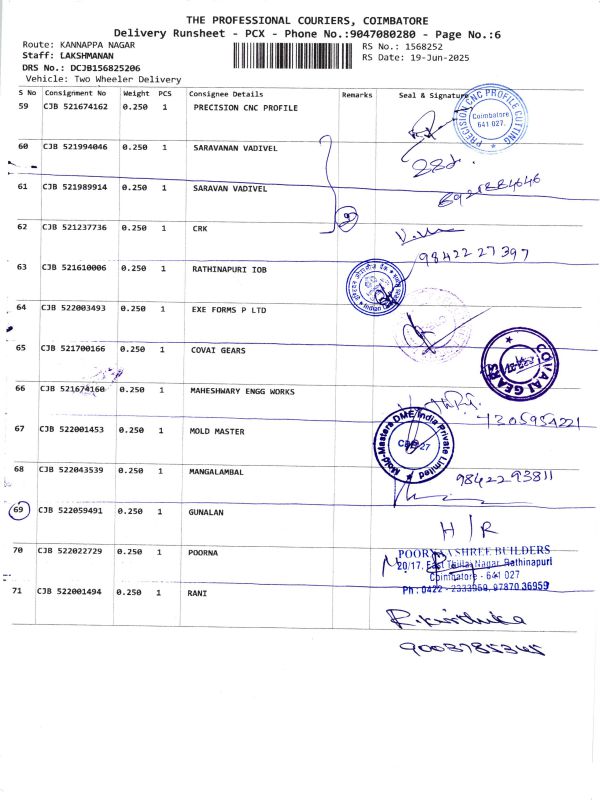 THE PROFESSIONAL COURIERS, COIMBATORE
Delivery Runsheet - PCX - Phone No.:9047080280 - Page No.:6
Route: KANNAPPA NAGAR
RS No.: 1568252
Staff: LAKSHMANAN
RS Date: 19-Jun-2025
DRS No.: DCJB156825206
Vehicle: Two Wheeler Delivery
S No Consignment No Weight PCS Consignee Details Remarks Seal & Signature
59 CJB 521674162 0.250 1 PRECISION CNC PROFILE
PRECISION CNC PROFILE CUTTING
Coimbatore
641 027.
60 CJB 521994046 0.250 1 SARAVANAN VADIVEL
61 CJB 521989914 0.250 1 SARAVAN VADIVEL
62 CJB 521237736 0.250 1 CRK
9842227397
63 CJB 521610006 0.250 1 RATHINAPURI IOB
64 CJB 522003493 0.250 1 EXE FORMS P LTD
65 CJB 521700166 0.250 1 COVAI GEARS
COVAI GEARS
66 CJB 521674160 0.250 1 MAHESHWARY ENGG WORKS
67 CJB 522001453 0.250 1 MOLD MASTER
Mold-Masters DME India Private Limited
68 CJB 522043539 0.250 1 MANGALAMBAL
9842293811
69 CJB 522059491 0.250 1 GUNALAN
H/R
70 CJB 522022729 0.250 1 POORNA
POORNASHREE BUILDERS
20/17, East Thillai Nagar, Rathinapuri
Coimbatore - 641 027
Ph : 0422 - 2333959, 97870 36959
71 CJB 522001494 0.250 1 RANI